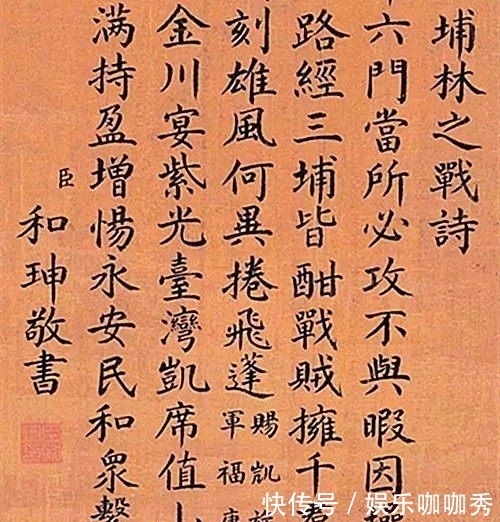 埔林之戰詩
六門當所必攻不與暇因
路經三埔皆酣戰賊擁千
刻雄風何異捲飛蓬
賜凱
軍福
金川宴紫光臺灣凱席值
满持盈增惕永安民和衆繫
臣
和珅敬書
快传号/娱乐咖咖秀